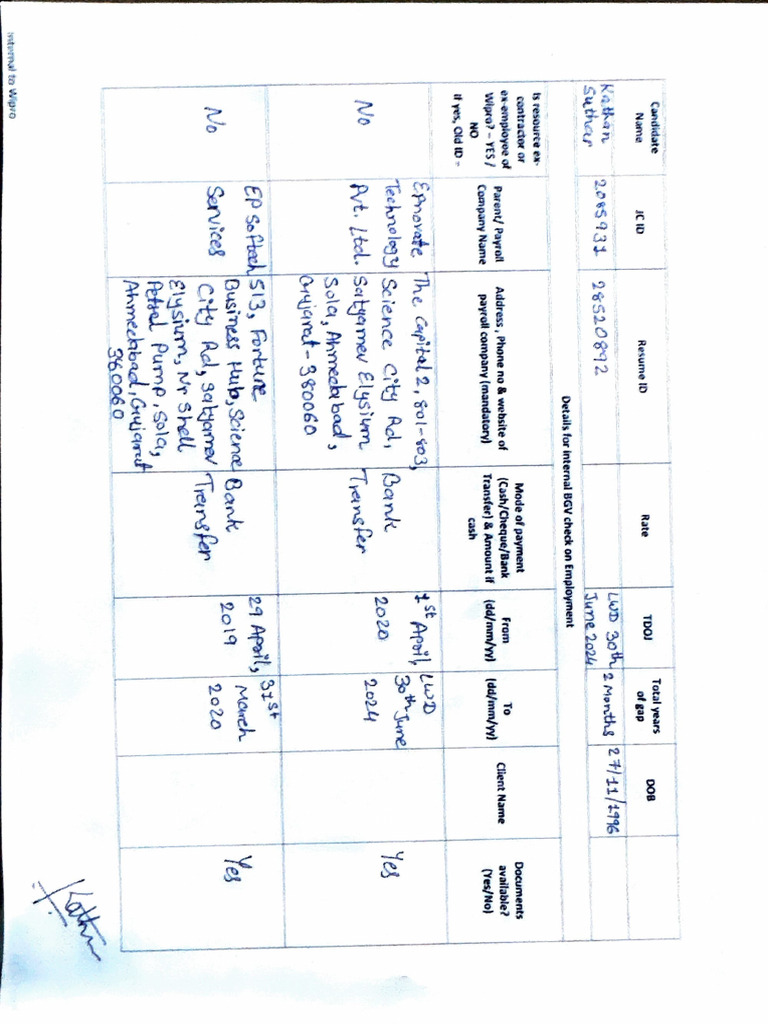 Candidate Name
JC ID
Resume ID
Rate
TDOJ
Total years of gap
DOB
Kathan Suthar
2085931
28520892
LWD 30th June 2024
2 Months
27/11/1996
Details for internal BGV check on Employment
Is resource ex-contractor or ex-employee of Wipro? – YES / NO
If yes, Old ID =
Parent/ Payroll Company Name
Address , Phone no & website of payroll company (mandatory)
Mode of payment (Cash/Cheque/Bank Transfer) & Amount if cash
From (dd/mm/yy)
To (dd/mm/yy)
Client Name
Documents available? (Yes/No)
No
Epnovate Technology Pvt. Ltd.
The Capital 2, 801-803,
Science City Rd,
Satyamev Elysium
Sola, Ahmedabad,
Gujarat - 380060
Bank Transfer
1st April, 2020
LWD 30th June 2024
Yes
No
EP Softech Services
513, Fortune
Business Hub, Science
City Rd, Satyamev
Elysium, Nr Shell
Petrol Pump, Sola,
Ahmedabad, Gujarat
380060
Bank Transfer
29 April, 2019
31st March 2020
Yes
Internal to Wipro